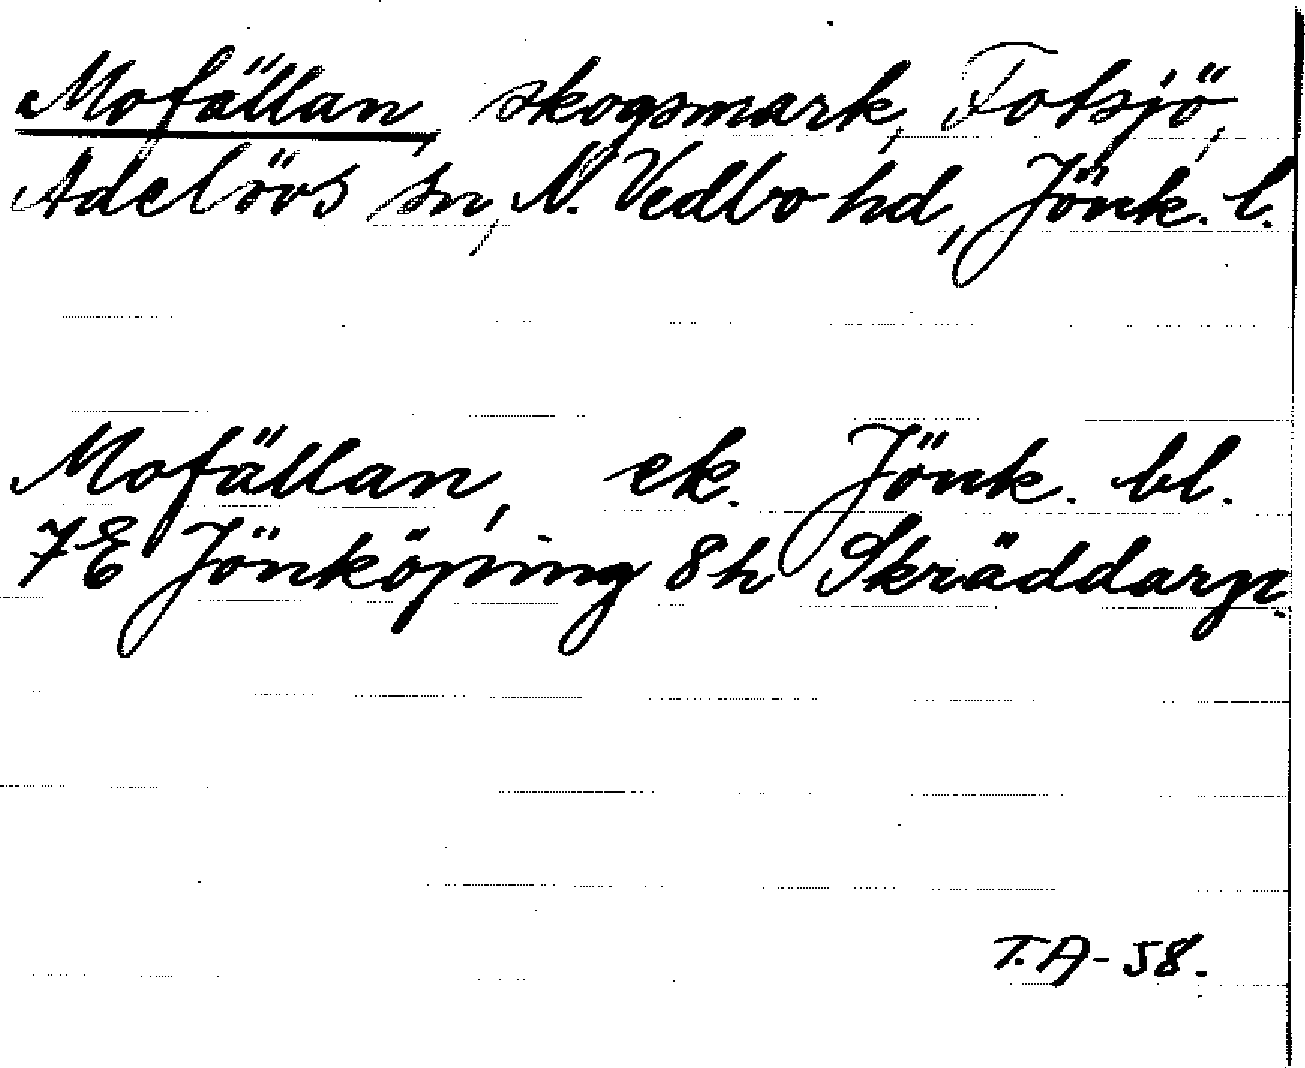 Mofällan, skogsmark, Fotsjö,
Adelövs sn, N. Vedbo hd, Jönk. l.
Mofällan, ek. Jönk. bl.
7E Jönköping 8h Skräddarp.
T.A-58.